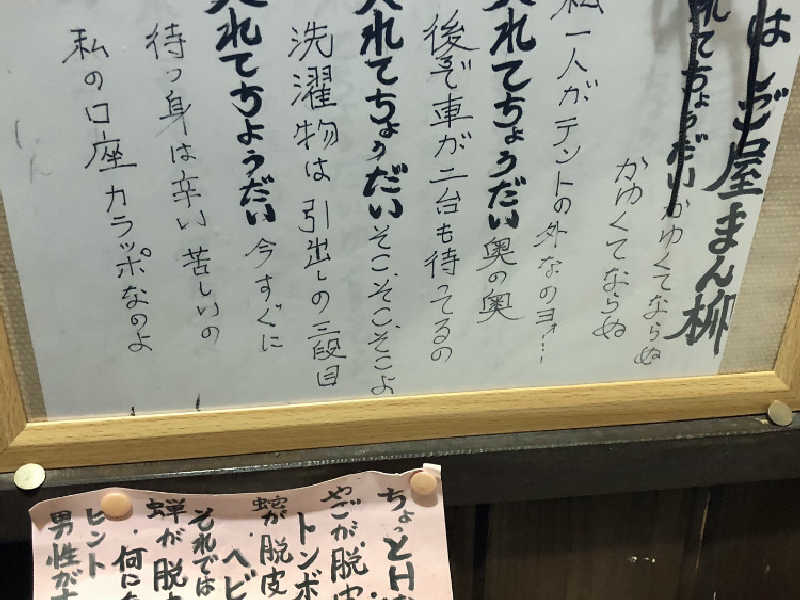 はしご屋まん柳
れてちょうだい かゆくてならぬ
かゆくてならぬ
私一人がテントの外なのヨォ…
入れてちょうだい 奥の奥
後ろで車が二台も待ってるの
入れてちょうだい そこ、そこ、そこよ
洗濯物は引出しの三段目
入れてちょうだい 今すぐに
待つ身は辛い 苦しいの
私の口座カラッポなのよ
ちょっとH
やごが脱皮
トンボ
蛇が脱皮
ヘビ
それでは
蝉が脱
何に
ヒント
男性が